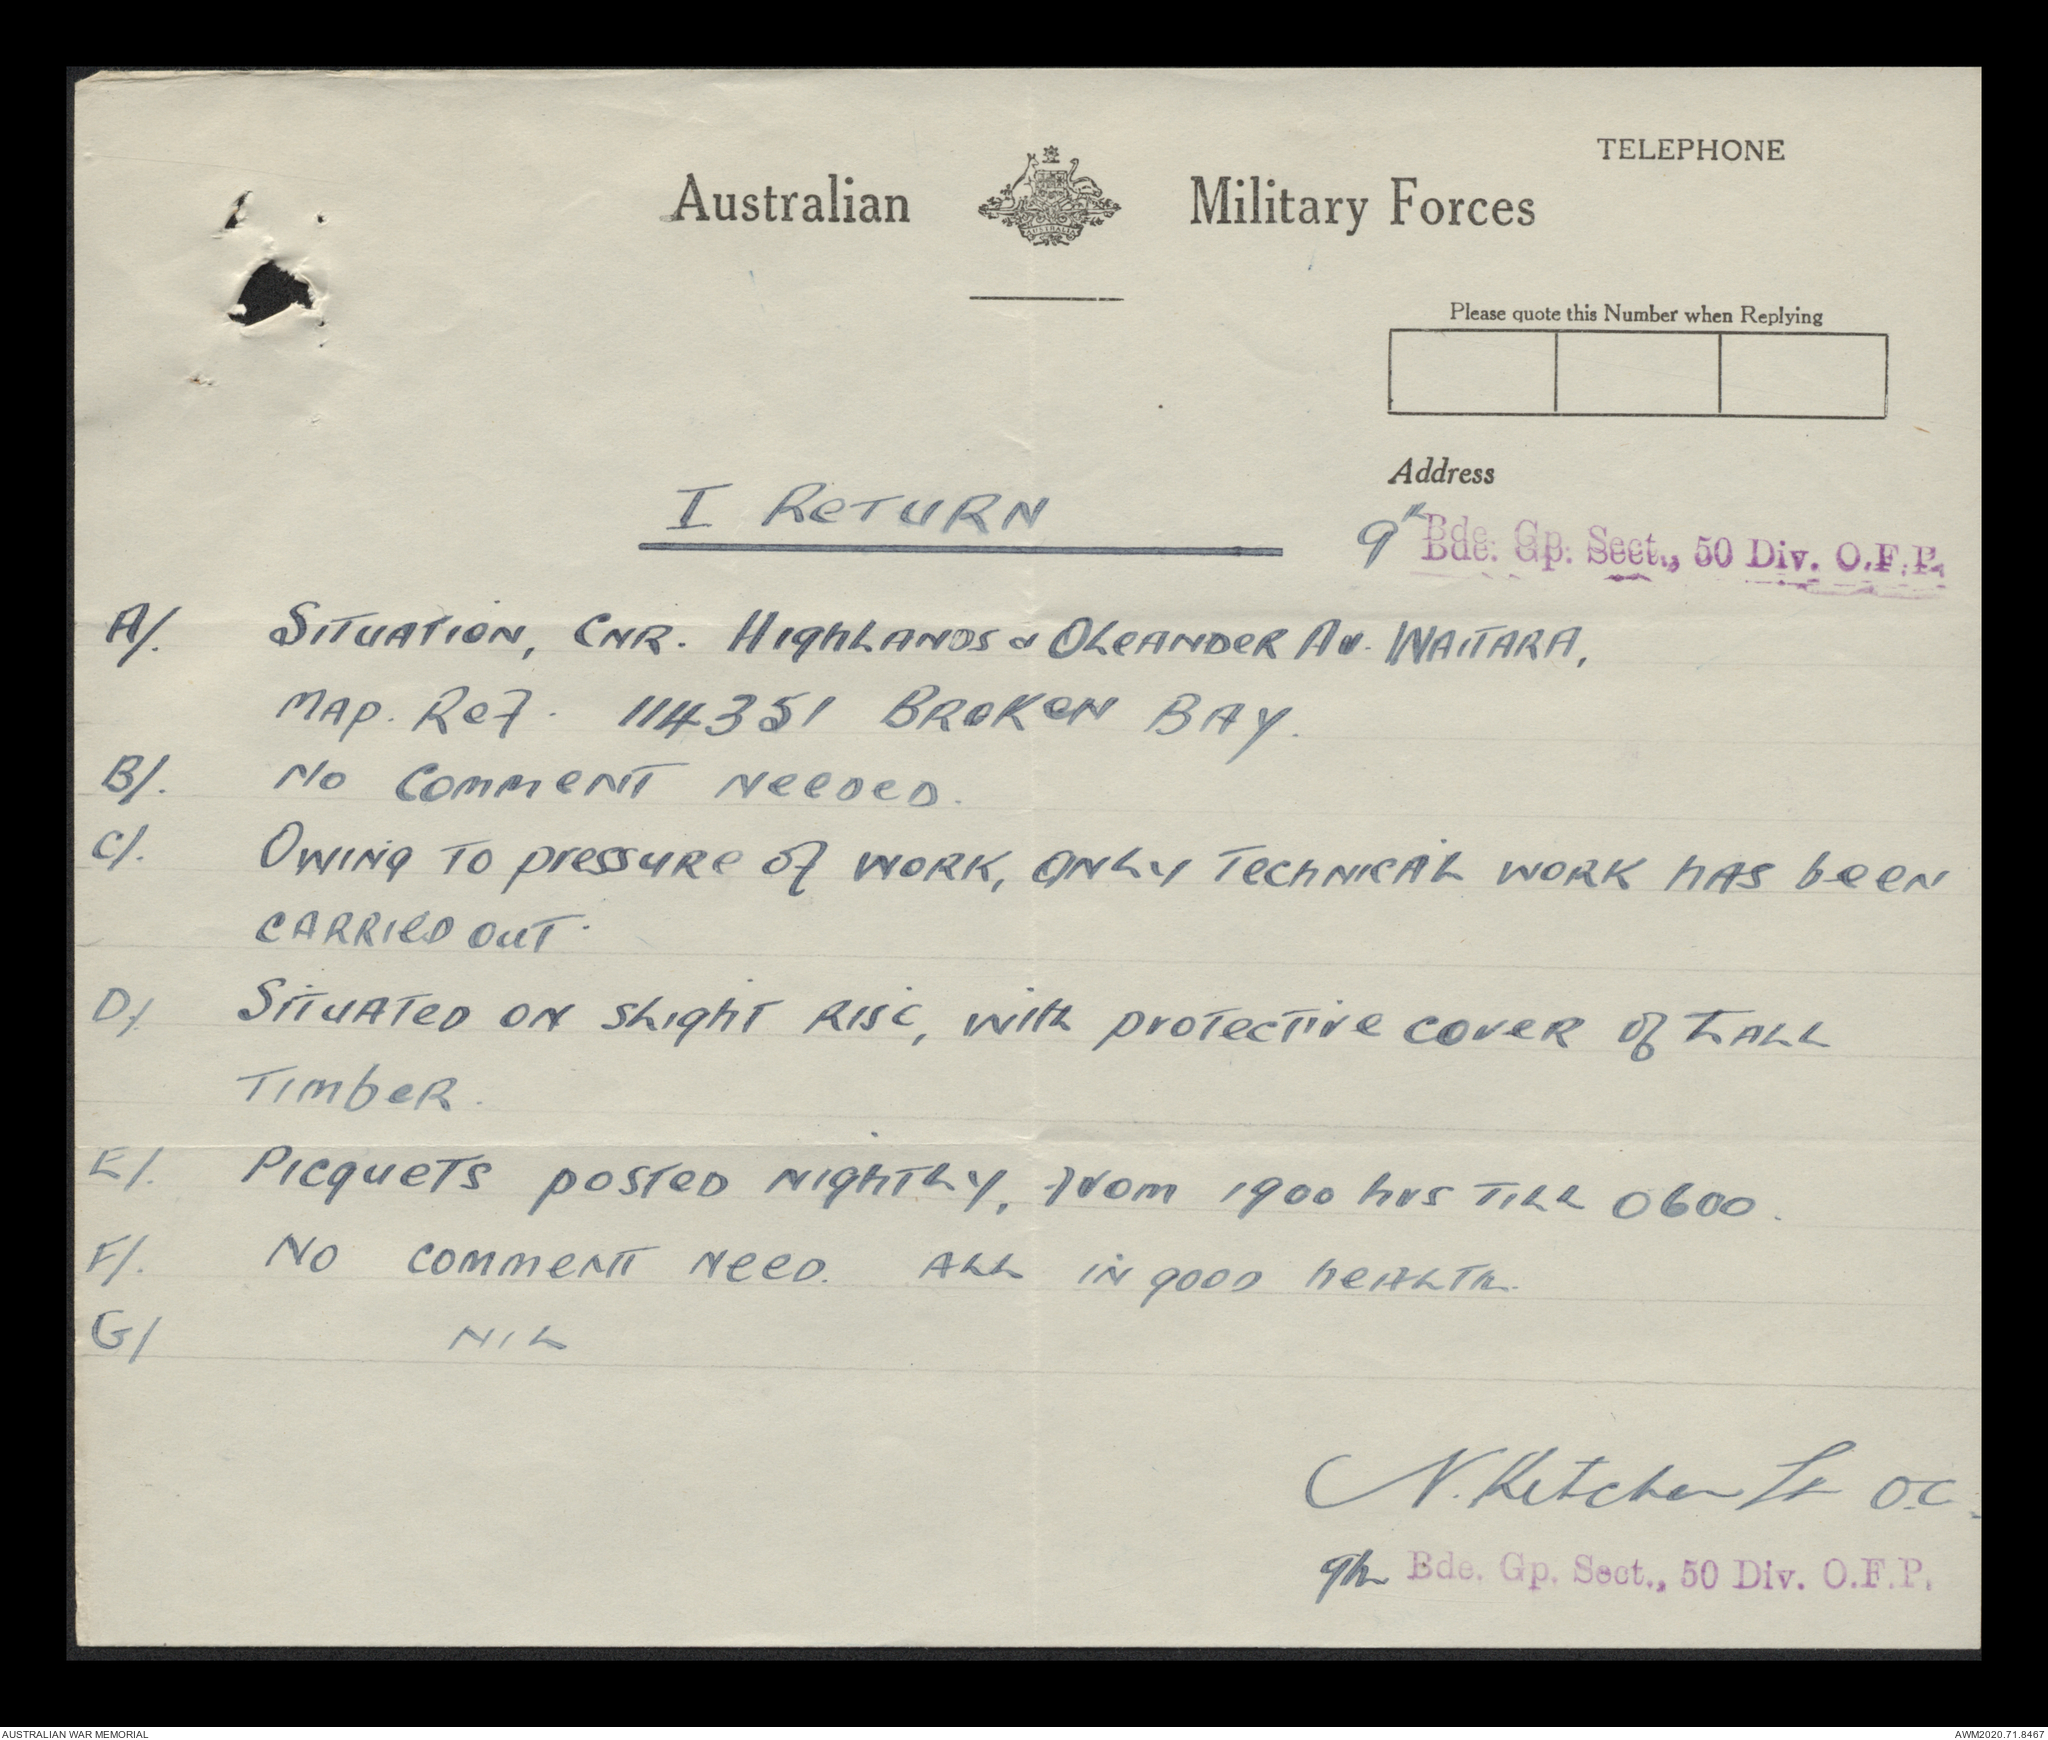 TELEPHONE
Australian Military Forces
AUSTRALIA
Please quote this Number when Replying
Address
I RETURN
9th Bde. Gp. Sect., 50 Div. O.F.P.
A/. SITUATION, CNR. HIGHLANDS & OLEANDER AV. WAITARA,
MAP. REF. 114351 BROKEN BAY.
B/. NO COMMENT NEEDED.
C/. OWING TO pressure of WORK, ONLY TECHNICAL WORK HAS been
CARRIED OUT.
D/ SITUATED ON SLIGHT RISE, with protective COVER of TALL
TIMBER.
E/. PICQUETS POSTED NIGHTLY, from 1900 hrs TILL 0600.
F/. NO COMMENT NEED. ALL IN GOOD HEALTH.
G/ NIL
N. Ketcher Lt O.C.
9th Bde. Gp. Sect., 50 Div. O.F.P.
AUSTRALIAN WAR MEMORIAL
AWM2020.71.8467